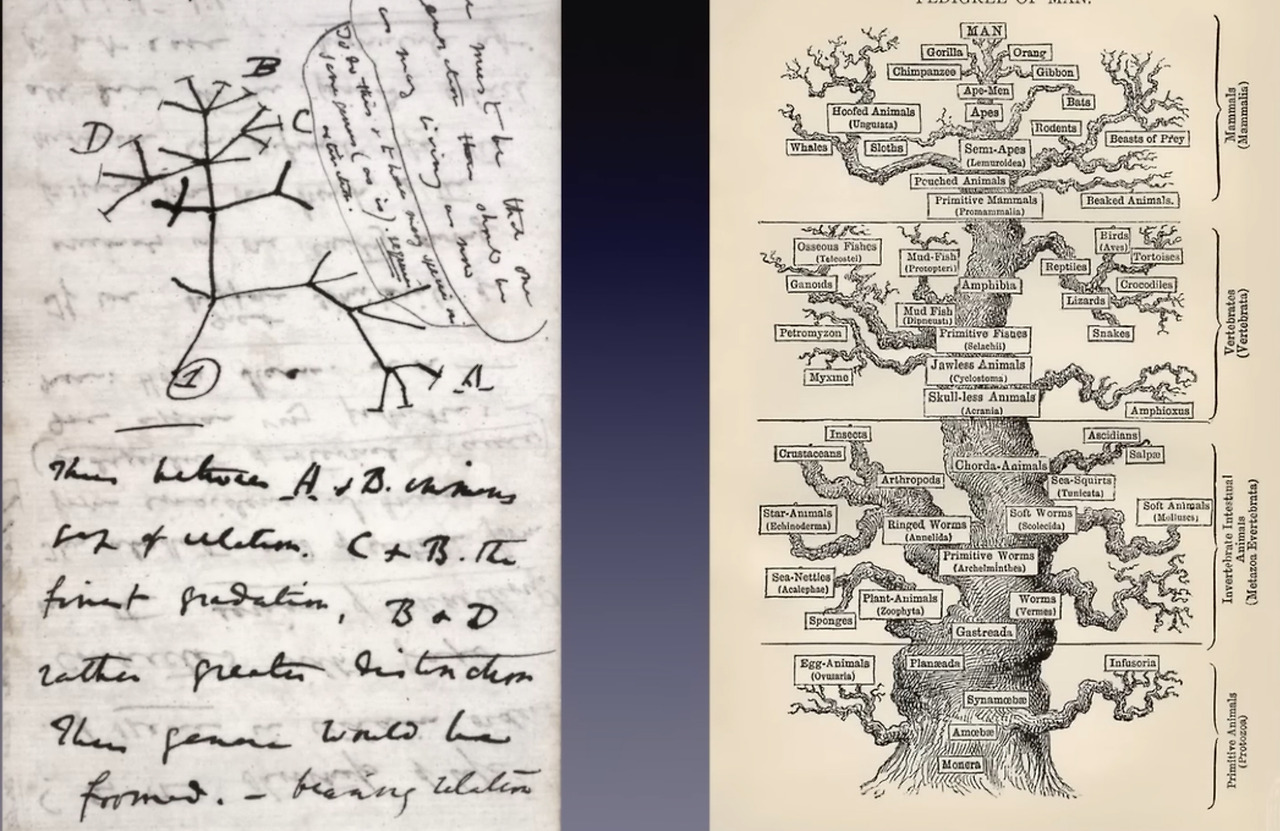 must be that one
then should be
as many living as now
To do this & to have many species in
same genus (as is). requires
extinction.
B
C
D
A
1
Thus between A & B. immens
gap of relation. C & B. the
finest gradation, B & D
rather greater distinction
Thus genera would be
formed. — bearing relation
PEDIGREE OF MAN.
MAN
Gorilla
Orang
Chimpanzee
Gibbon
Ape-Men
Bats
Apes
Hoofed Animals
(Ungulata)
Rodents
Beasts of Prey
Whales
Sloths
Semi-Apes
(Lemuroidea)
Pouched Animals
Primitive Mammals
(Promammalia)
Beaked Animals.
Mammals
(Mammalia)
Osseous Fishes
(Teleostei)
Mud-Fish
(Protopteri)
Birds
(Aves)
Tortoises
Reptiles
Ganoids
Amphibia
Crocodiles
Lizards
Mud Fish
(Dipneusti)
Petromyzon
Primitive Fishes
(Selachii)
Snakes
Myxine
Jawless Animals
(Cyclostoma)
Skull-less Animals
(Acrania)
Amphioxus
Vertebrates
(Vertebrata)
Insects
Ascidians
Crustaceans
Salpæ
Chorda-Animals
Arthropods
Sea-Squirts
(Tunicata)
Star-Animals
(Echinoderma)
Ringed Worms
(Annelida)
Soft Worms
(Scolecida)
Soft Animals
(Molluscs)
Primitive Worms
(Archelminthes)
Sea-Nettles
(Acalephae)
Plant-Animals
(Zoophyta)
Worms
(Vermes)
Sponges
Gastreada
Invertebrate Intestinal
Animals
(Metazoa Evertebrata)
Egg-Animals
(Ovularia)
Planæada
Infusoria
Synamœbæ
Amœbæ
Monera
Primitive Animals
(Protozoa)